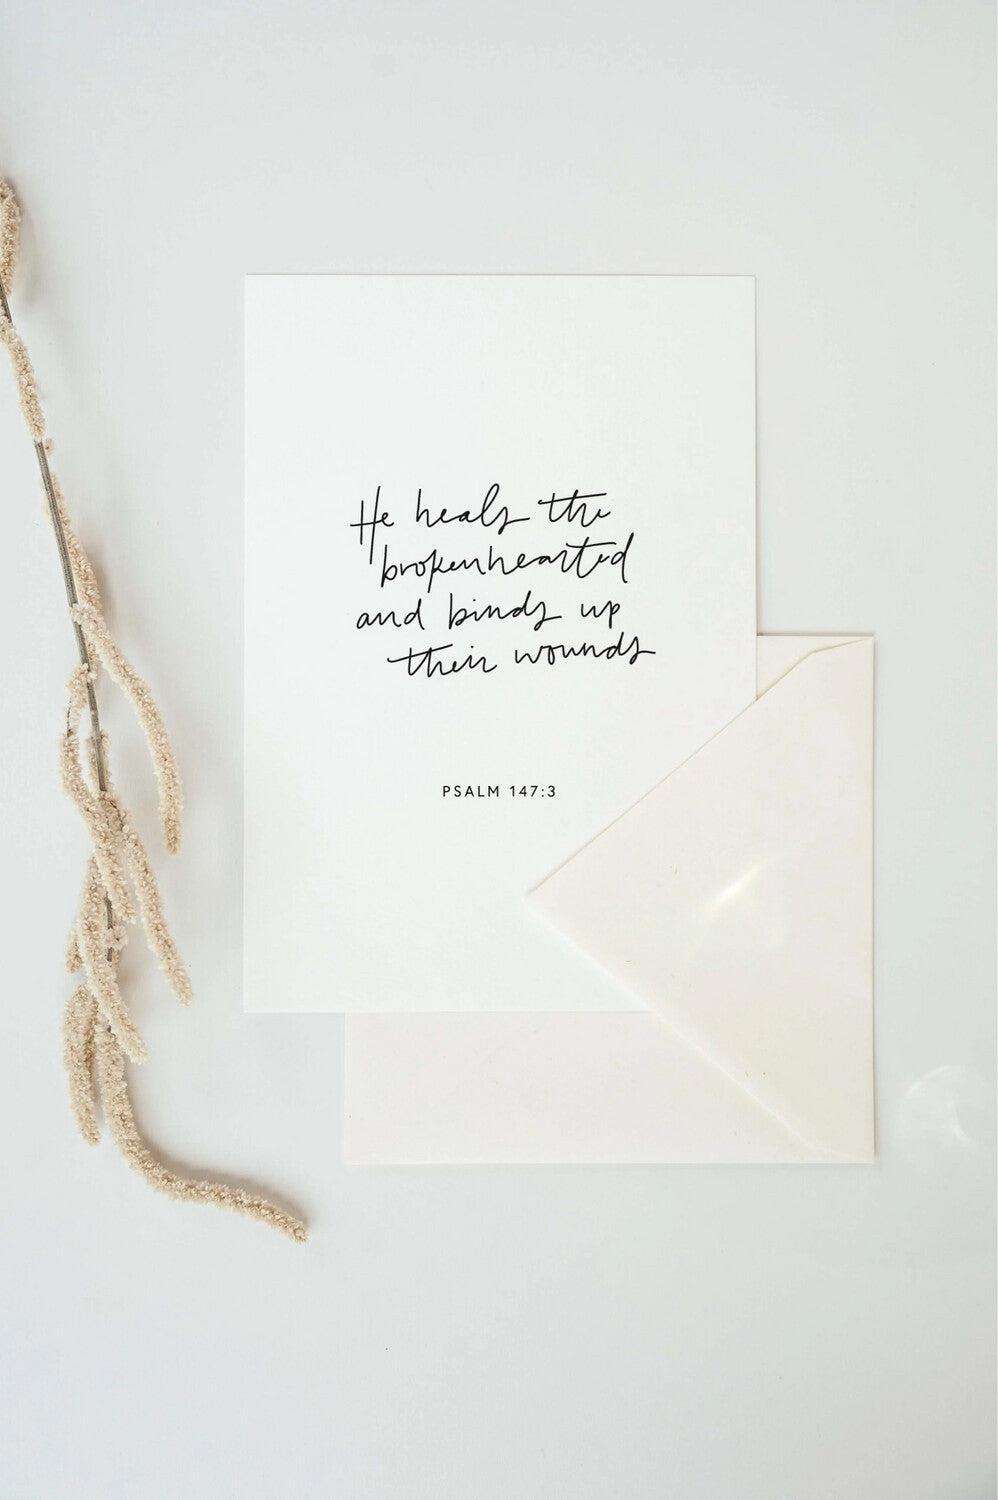 He heals the
brokenhearted
and binds up
their wounds
PSALM 147:3